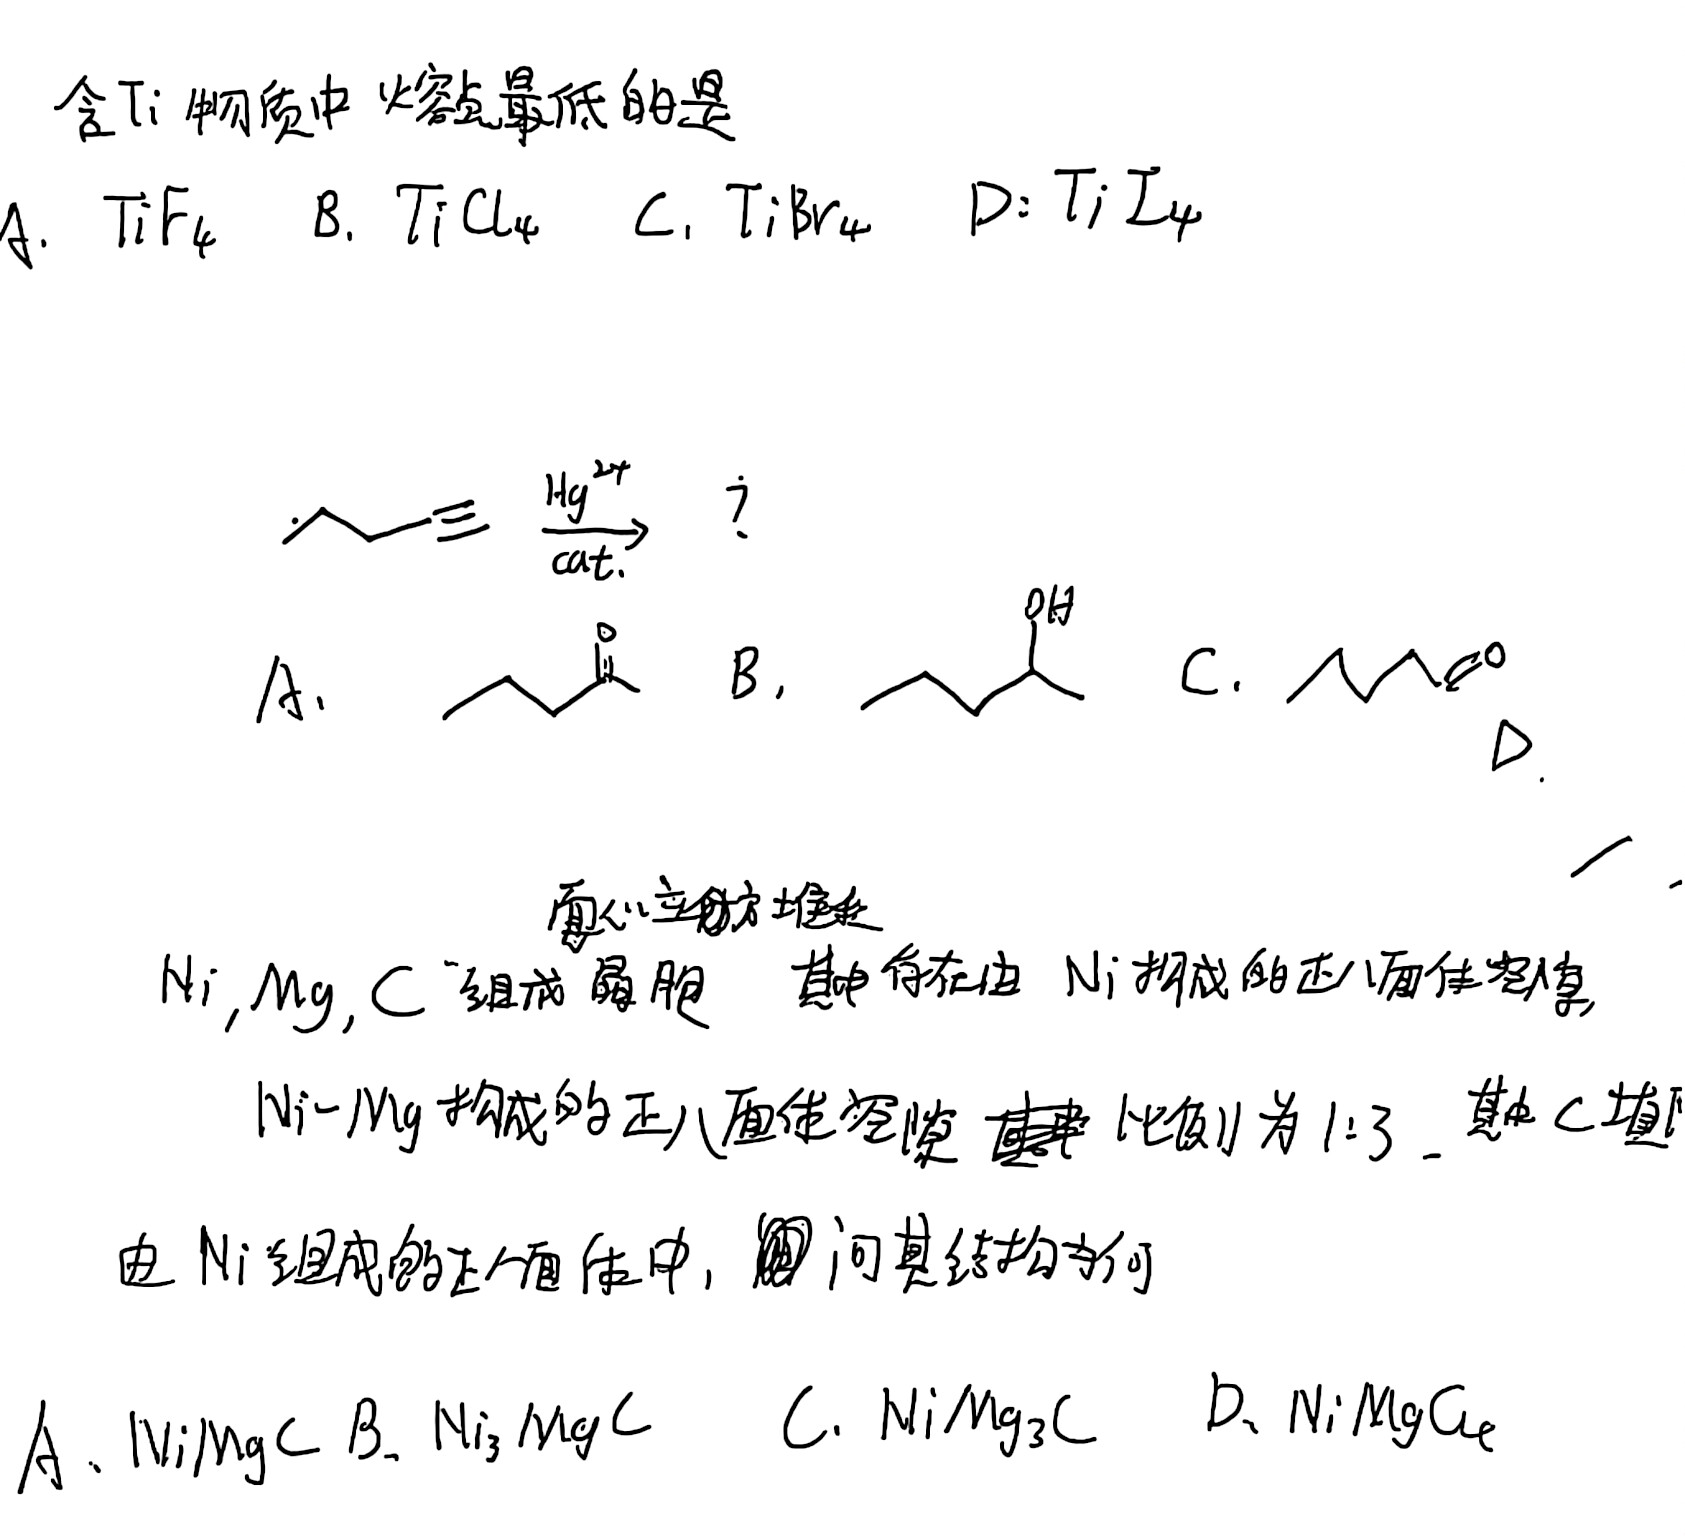 含Ti物质中熔点最低的是
A. TiF₄ B. TiCl₄ C. TiBr₄ D: TiI₄
Hg²⁺
cat. ?
OH
A. O B. C. O
D.
面心立方堆积
Ni, Mg, C 组成晶胞 其中存在由 Ni 构成的正八面体空隙,
Ni-Mg 构成的正八面体空隙 比例为 1:3 _ 其中 C 填
由 Ni 组成的正八面体中, 问其结构为何
A、NiMgC B. Ni₃MgC C. NiMg₃C D、NiMgC₄